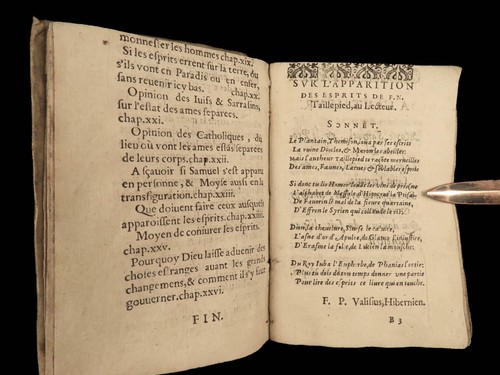 monnester les hommes chap.xix.
Si les esprits errent sur la terre, ou
s'ils vont en Paradis ou en enfer,
sans reuenir icy bas. chap.xx.
Opinion des Iuifs & Sarrasins,
sur l'estat des ames separees.
chap.xxi.
Opinion des Catholiques, du
lieu où vont les ames separees
de leurs corps. chap.xxii.
A sçauoir si Samuel s'est apparu
en personne, & Moyse aussi en la
transfiguration. chap.xxiii.
Que doiuent faire ceux ausquels
apparoissent les esprits. chap.xxiiii.
Moyen de coniurer les esprits.
chap.xxv.
Pourquoy Dieu laisse aduenir des
choses estranges auant les grands
changemens, & comment il s'y faut
gouuerner. chap.xxvi.
FIN.
SVR L'APPARITION
DES ESPRITS DE F.N.
Taillepied, au Lecteur.
SONNET.
Le Plantain, Themison, loua par ses escrits
La ruine Diocles, & Myron
Mais l'autheur Taillepied
Des ames, Faunes, Larues & Diables esprits
Si donc tu lis
L'alphabet de
De Fauorin le mal de la fieure quartaine,
D'Efren le Syrien qui
Dion, la cheuelure,
L'asne d'or d'Apulee, de Glauco l'iniustice,
D'Erasme la folie, de Lucien la mousche:
Du Roy Iuba l'Euphorbe, de Phanias l'ortie:
Plus tu dois donc
Pour lire des esprits ce liure qui en touche.
F. P. Valisius, Hibernien.
B3